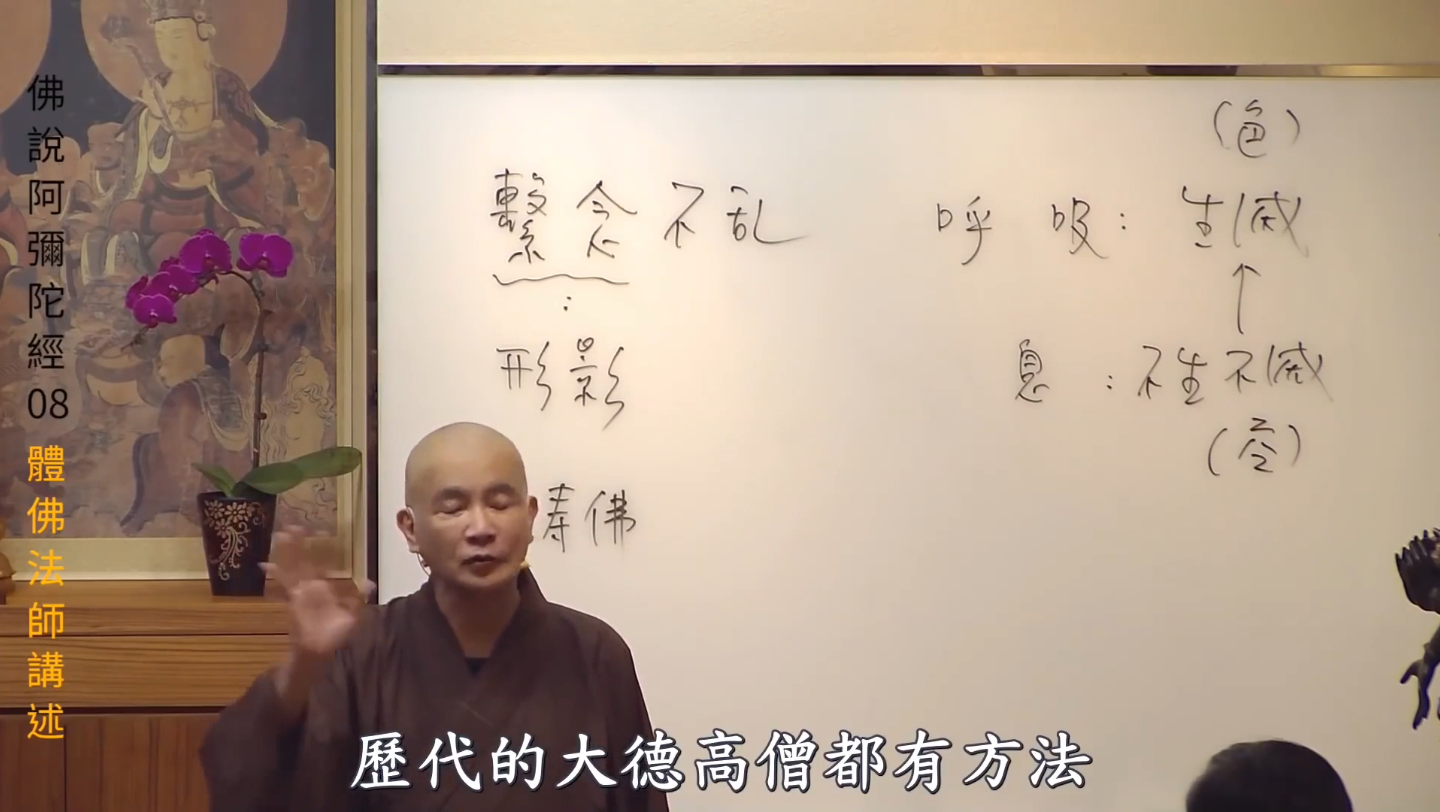 佛說阿彌陀經08
體佛法師講述
繫念不乱
:
形影
寿佛
(色)
呼吸:生滅
↑
息:不生不滅
(空)
歷代的大德高僧都有方法